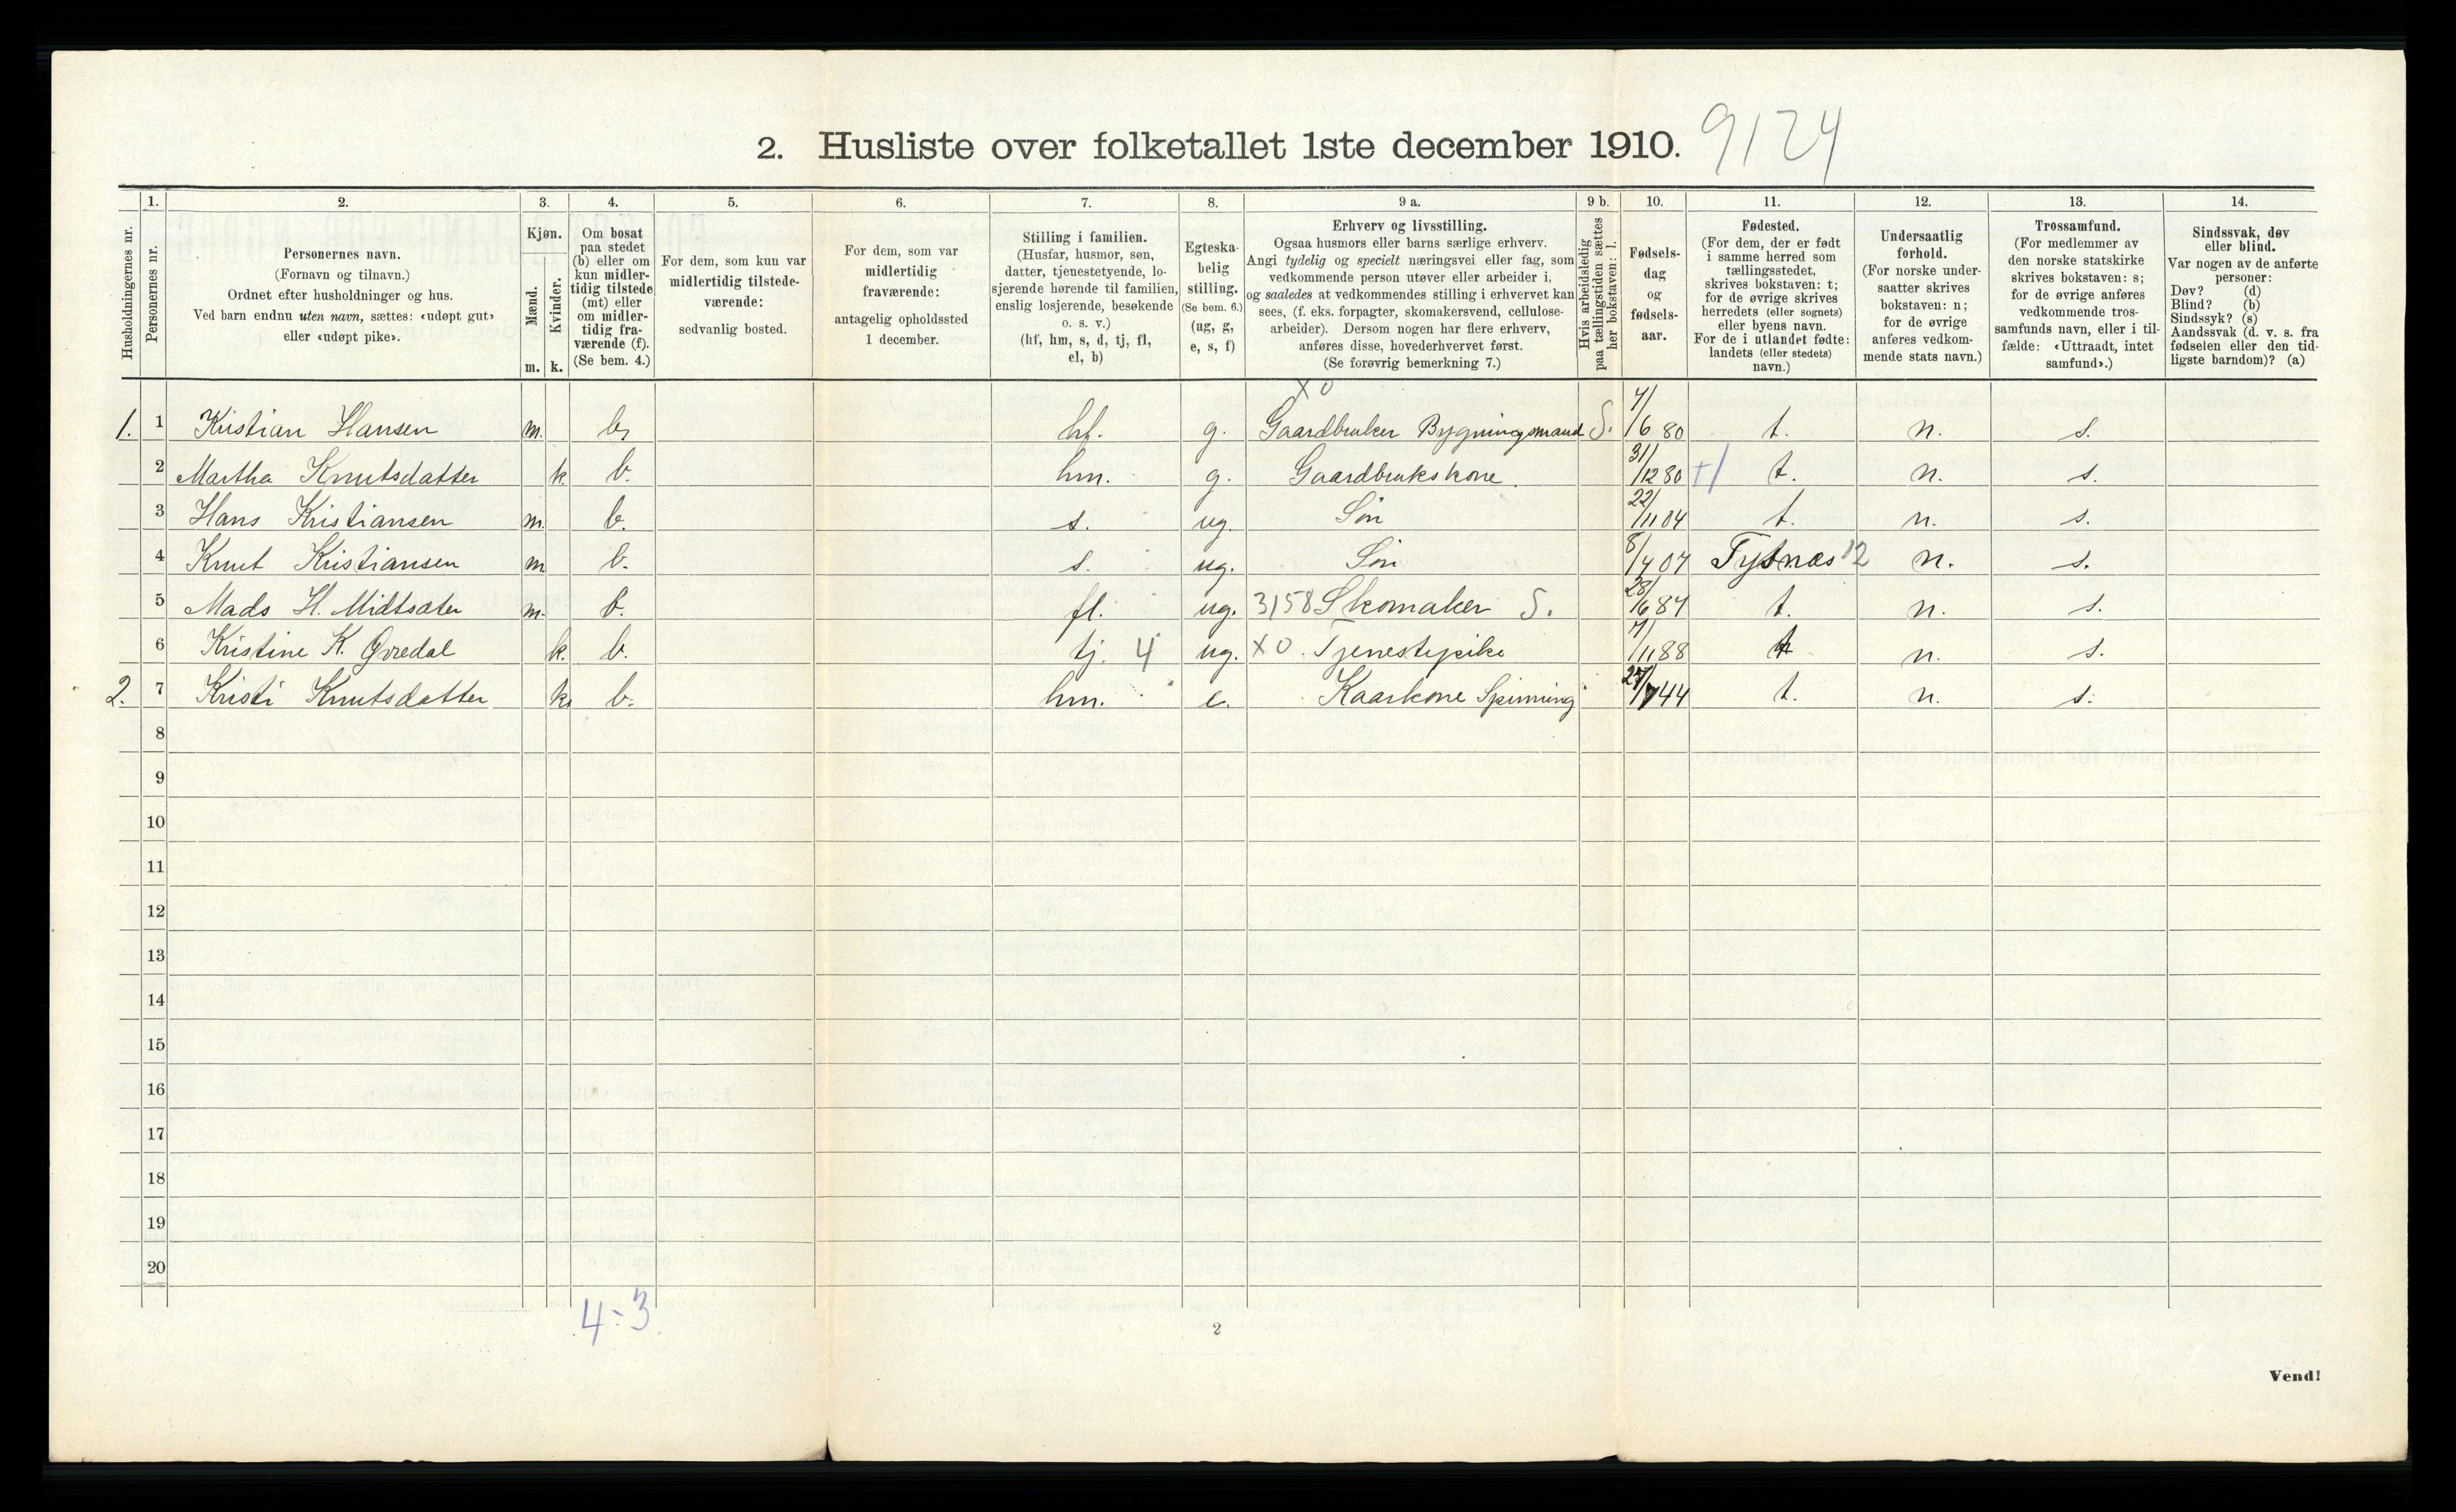 2. Husliste over folketallet 1ste december 1910. 9124
Husholdningernes nr.
1. Personernes nr.
2. Personernes navn.
(Fornavn og tilnavn.)
Ordnet efter husholdninger og hus.
Ved barn endnu uten navn, sættes: «udøpt gut»
eller «udøpt pike».
3. Kjøn.
Mænd. Kvinder.
m. k.
4. Om bosat
paa stedet
(b) eller om
kun midler-
tidig tilstede
(mt) eller
om midler-
tidig fra-
værende (f).
(Se bem. 4.)
5. For dem, som kun var
midlertidig tilstede-
værende:
sedvanlig bosted.
6. For dem, som var
midlertidig
fraværende:
antagelig opholdssted
1 december.
7. Stilling i familien.
(Husfar, husmor, søn,
datter, tjenestetyende, lo-
sjerende hørende til familien,
enslig losjerende, besøkende
o. s. v.)
(hf, hm, s, d, tj, fl,
el, b)
8. Egteska-
belig
stilling.
(Se bem. 6.)
(ug, g,
e, s, f)
9 a. Erhverv og livsstilling.
Ogsaa husmors eller barns særlige erhverv.
Angi tydelig og specielt næringsvei eller fag, som
vedkommende person utøver eller arbeider i,
og saaledes at vedkommendes stilling i erhvervet kan
sees, (f. eks. forpagter, skomakersvend, cellulose-
arbeider). Dersom nogen har flere erhverv,
anføres disse, hovederhvervet først.
(Se forøvrig bemerkning 7.)
9 b. Hvis arbeidsledig
paa tællingstiden sættes
her bokstaven: l.
10. Fødsels-
dag
og
fødsels-
aar.
11. Fødested.
(For dem, der er født
i samme herred som
tællingsstedet,
skrives bokstaven: t;
for de øvrige skrives
herredets (eller sognets)
eller byens navn.
For de i utlandet fødte:
landets (eller stedets)
navn.)
12. Undersaatlig
forhold.
(For norske under-
saatter skrives
bokstaven: n;
for de øvrige
anføres vedkom-
mende stats navn.)
13. Trossamfund.
(For medlemmer av
den norske statskirke
skrives bokstaven: s;
for de øvrige anføres
vedkommende tros-
samfunds navn, eller i til-
fælde: «Uttraadt, intet
samfund».)
14. Sindssvak, døv
eller blind.
Var nogen av de anførte
personer:
Døv? (d)
Blind? (b)
Sindssyk? (s)
Aandssvak (d. v. s. fra
fødselen eller den tid-
ligste barndom)? (a)
X 0
1. 1 Kristian Hansen m. b. hf. g. Gaardbruker Bygningsmand S. 7/6 80 t. n. s.
2 Martha Knutsdatter k. b. hm. g. Gaardbrukskone. 31/12 80 t. n. s.
3 Hans Kristiansen m. b. s. ug. Søn 22/11 04 t. n. s.
4 Knut Kristiansen m b. s. ug. Søn 8/4 07 Tysnæs 12 n. s.
5 Mads H. Midtsæter m. b. fl. ug. 3158 Skomaker S. 28/6 87 t. n. s.
6 Kristine K. Øvredal k. b. tj. 4 ug. X 0. Tjenestepike 7/11 88 t n. s.
2. 7 Kristi Knutsdatter k. b. hm. e. Kaarkone Spinning 27/7 44 t. n. s.
8
9
10
11
12
13
14
15
16
17
18
19
20
4-3
2
Vend!